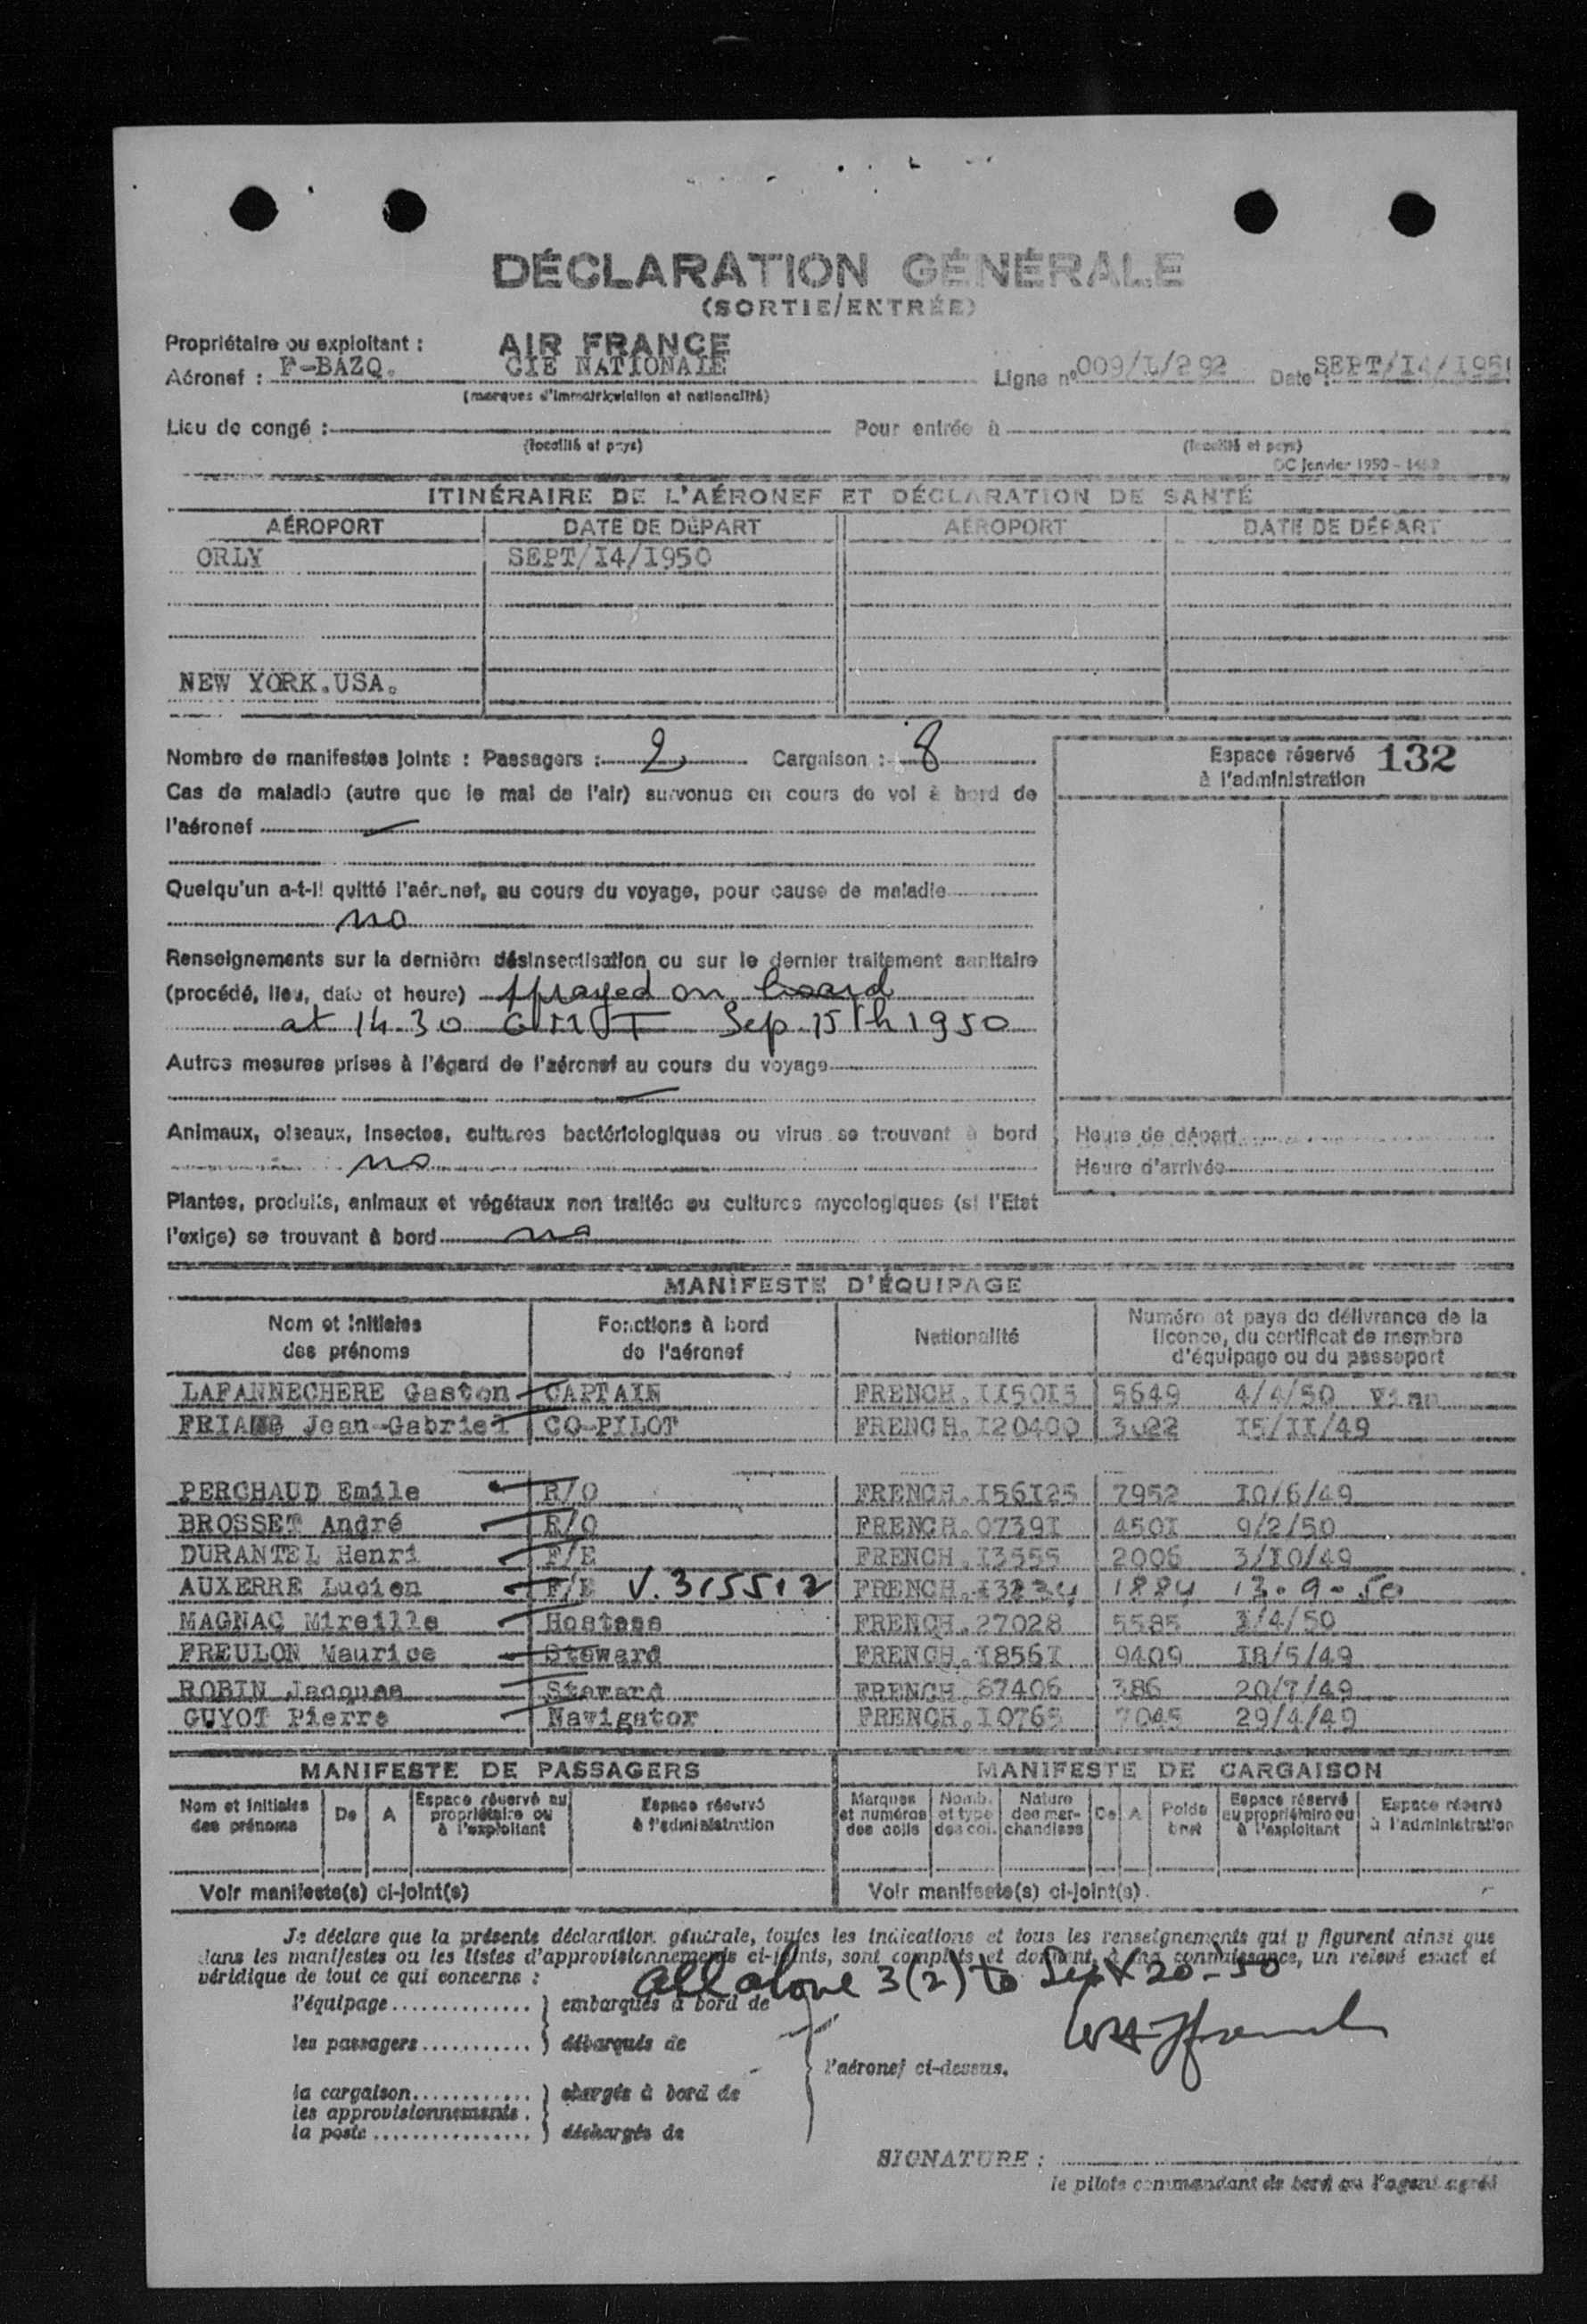 DÉCLARATION GÉNÉRALE
(SORTIE/ENTRÉE)
Propriétaire ou exploitant : AIR FRANCE
Aéronef : F-BAZQ. CIE NATIONALE Ligne n° 009/I/292 Date : SEPT/I4/195
(marques d'immatriculation et nationalité)
Lieu de congé : Pour entrée à
(localité et pays) (localité et pays)
OC janvier 1950 -
ITINÉRAIRE DE L'AÉRONEF ET DÉCLARATION DE SANTÉ
AÉROPORT DATE DE DÉPART AÉROPORT DATE DE DÉPART
ORLY SEPT/I4/1950
NEW YORK.USA.
Nombre de manifestes joints : Passagers : 2 Cargaison : 8
Espace réservé 132
à l'administration
Cas de maladie (autre que le mal de l'air) survenus en cours de vol à bord de
l'aéronef —
Quelqu'un a-t-il quitté l'aéronef, au cours du voyage, pour cause de maladie
no
Renseignements sur la dernière désinsectisation ou sur le dernier traitement sanitaire
(procédé, lieu, date et heure) sprayed on board
at 14.30 GMT Sep. 15th 1950
Autres mesures prises à l'égard de l'aéronef au cours du voyage
—
Animaux, oiseaux, insectes, cultures bactériologiques ou virus se trouvant à bord
no
Heure de départ
Heure d'arrivée
Plantes, produits, animaux et végétaux non traités ou cultures mycologiques (si l'Etat
l'exige) se trouvant à bord no
MANIFESTE D'ÉQUIPAGE
Nom et initiales des prénoms Fonctions à bord de l'aéronef Nationalité Numéro et pays de délivrance de la licence, du certificat de membre d'équipage ou du passeport
LAFANNECHERE Gaston CAPTAIN FRENCH.II50I5 5649 4/4/50
FRIANG Jean-Gabriel CO-PILOT FRENCH.I20400 3022 I5/II/49
PERCHAUD Emile R/O FRENCH.I56I25 7952 I0/6/49
BROSSET André R/O FRENCH.0739I 450I 9/2/50
DURANTEL Henri F/E FRENCH.I3555 2006 3/I0/49
AUXERRE Lucien F/E V.315512 FRENCH.13234 1884 13-9-50
MAGNAC Mireille Hostess FRENCH.27028 5585 I/4/50
FREULON Maurice Steward FRENCH.I856I 9409 I8/5/49
ROBIN Jacques Steward FRENCH.87406 386 20/7/49
GUYOT Pierre Navigator FRENCH.I0765 7045 29/4/49
MANIFESTE DE PASSAGERS MANIFESTE DE CARGAISON
Nom et initiales des prénoms De A Espace réservé au propriétaire ou à l'exploitant Espace réservé à l'administration Marques et numéros des colis Nomb. et type des col. Nature des marchandises De A Poids brut Espace réservé au propriétaire ou à l'exploitant Espace réservé à l'administration
Voir manifeste(s) ci-joint(s) Voir manifeste(s) ci-joint(s).
Je déclare que la présente déclaration générale, toutes les indications et tous les renseignements qui y figurent ainsi que
dans les manifestes ou les listes d'approvisionnements ci-joints, sont complets et donnent, à ma connaissance, un relevé exact et
véridique de tout ce qui concerne :
all above 3(2) to Sept 20-50
l'équipage embarqués à bord de
les passagers débarqués de
l'aéronef ci-dessus.
la cargaison chargés à bord de
les approvisionnements
la poste déchargés de
SIGNATURE :
le pilote commandant de bord ou l'agent agréé